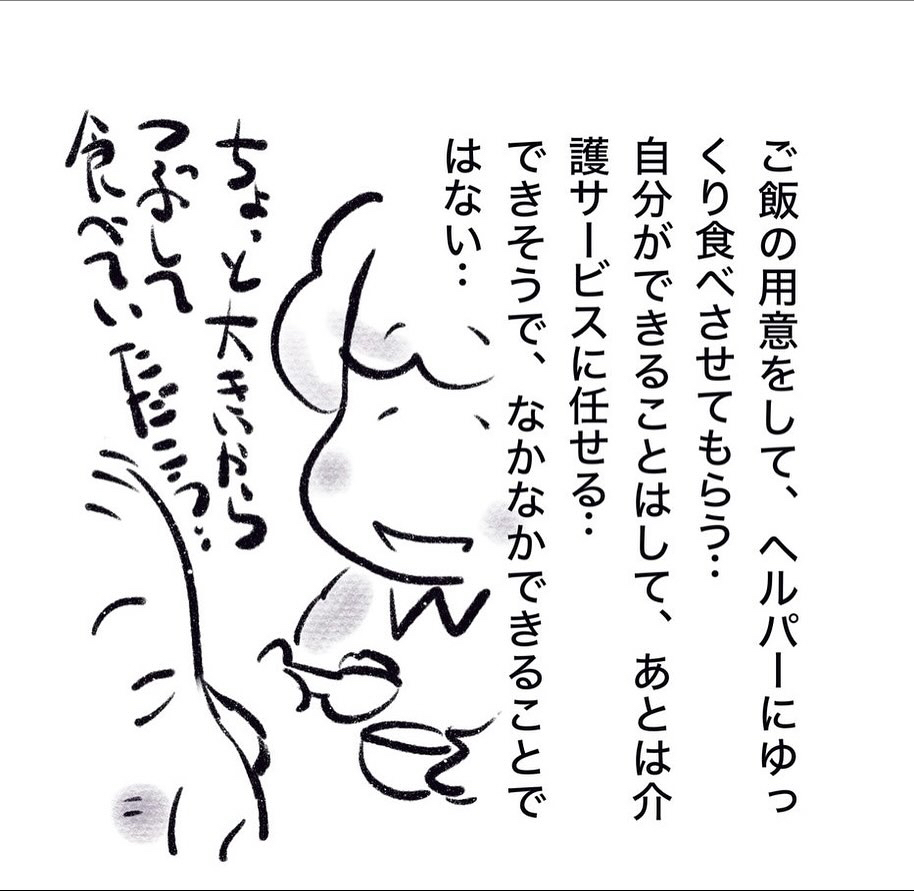 ご飯の用意をして、ヘルパーにゆっ
くり食べさせてもらう‥
自分ができることはして、あとは介
護サービスに任せる‥
できそうで、なかなかできることで
はない‥
ちょっと大きいから
つぶして
食べていただこう‥